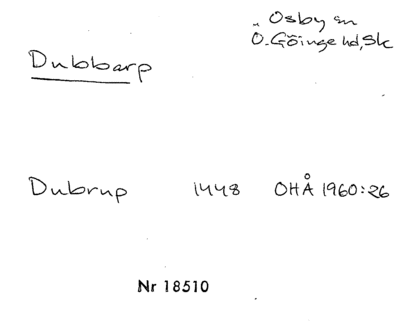 Osby sn
Ö. Göinge hd, Sk
Dubbarp
Dubrup 1448 OHÅ 1960:26
Nr 18510